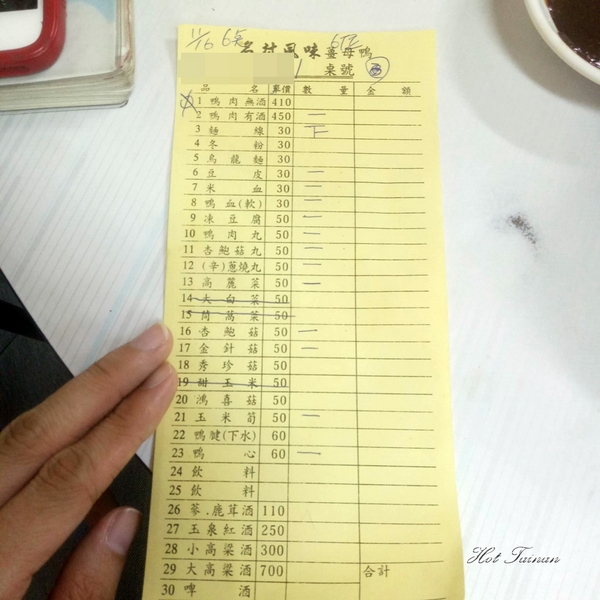 11/16 6桌
名村風味薑母鴨
桌號
品 名 單價 數 量 金 額
1 鴨肉無酒 410
2 鴨肉有酒 450 一
3 麵線 30 下
4 冬粉 30
5 烏龍麵 30
6 豆皮 30 一
7 米血 30 一
8 鴨血(軟) 30 一
9 凍豆腐 50 一
10 鴨肉丸 50 一
11 杏鮑菇丸 50 一
12 (辛)蔥燒丸 50 一
13 高麗菜 50 一
14 大白菜 50
15 茼萵菜 50
16 杏鮑菇 50 一
17 金針菇 50 一
18 秀珍菇 50
19 甜玉米 50
20 鴻喜菇 50
21 玉米筍 50 一
22 鴨腱(下水) 60
23 鴨心 60 一
24 飲料
25 飲料
26 蔘.鹿茸酒 110
27 玉泉紅酒 250
28 小高粱酒 300
29 大高粱酒 700 合計
30 啤酒
Hot Tainan